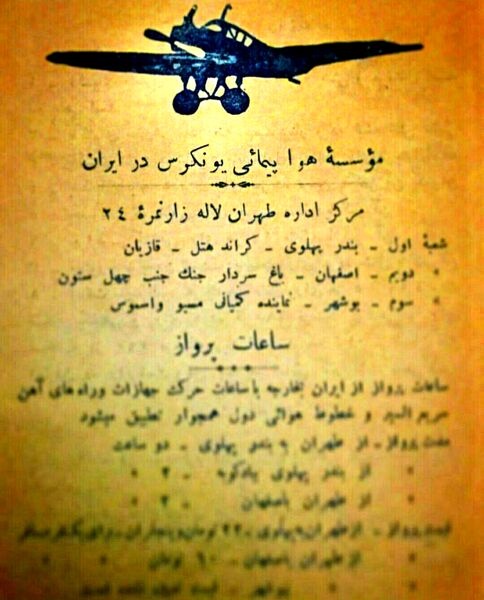 مؤسسهٔ هوا پیمائی یونکرس در ایران
مرکز اداره طهران لاله زار نمرهٔ ۲۴
شعبهٔ اول ـ بندر پهلوی ـ کراند هتل ـ قازیان
» دویم ـ اصفهان ـ باغ سردار جنك جنب چهل ستون
» سوم ـ بوشهر ـ نماینده کمپانی مسیو واسموس
ساعات پرواز
ساعات پرواز از ایران بخارجه با ساعات حرکت جهازات و راه های آهن
سریع السیر و خطوط هوائی دول همجوار تطبیق میشود
مدت پرواز ـ از طهران به بندر پهلوی ـ دو ساعت
» از بندر پهلوی ببادکوبه ـ ۲ »
» از طهران باصفهان ـ ۲ »
پرواز ـ از طهران به پهلوی
» از طهران باصفهان ـ ۶۰ تومان » »